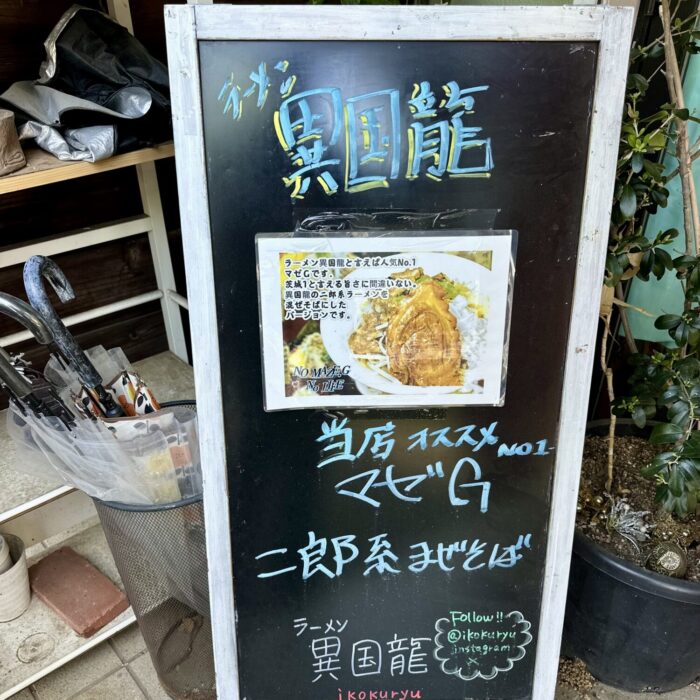 ラーメン
異国龍
ラーメン異国龍と言えば人気No.1
マゼGです。
茨城1と言える旨さに間違いない。
異国龍の二郎系ラーメンを
混ぜそばにした
バージョンです。
NO MAZEG
NO LIFE
当店オススメNO1
マゼG
二郎系まぜそば
ラーメン
異国龍
ikokuryu
Follow!!
@ikokuryu
instagram